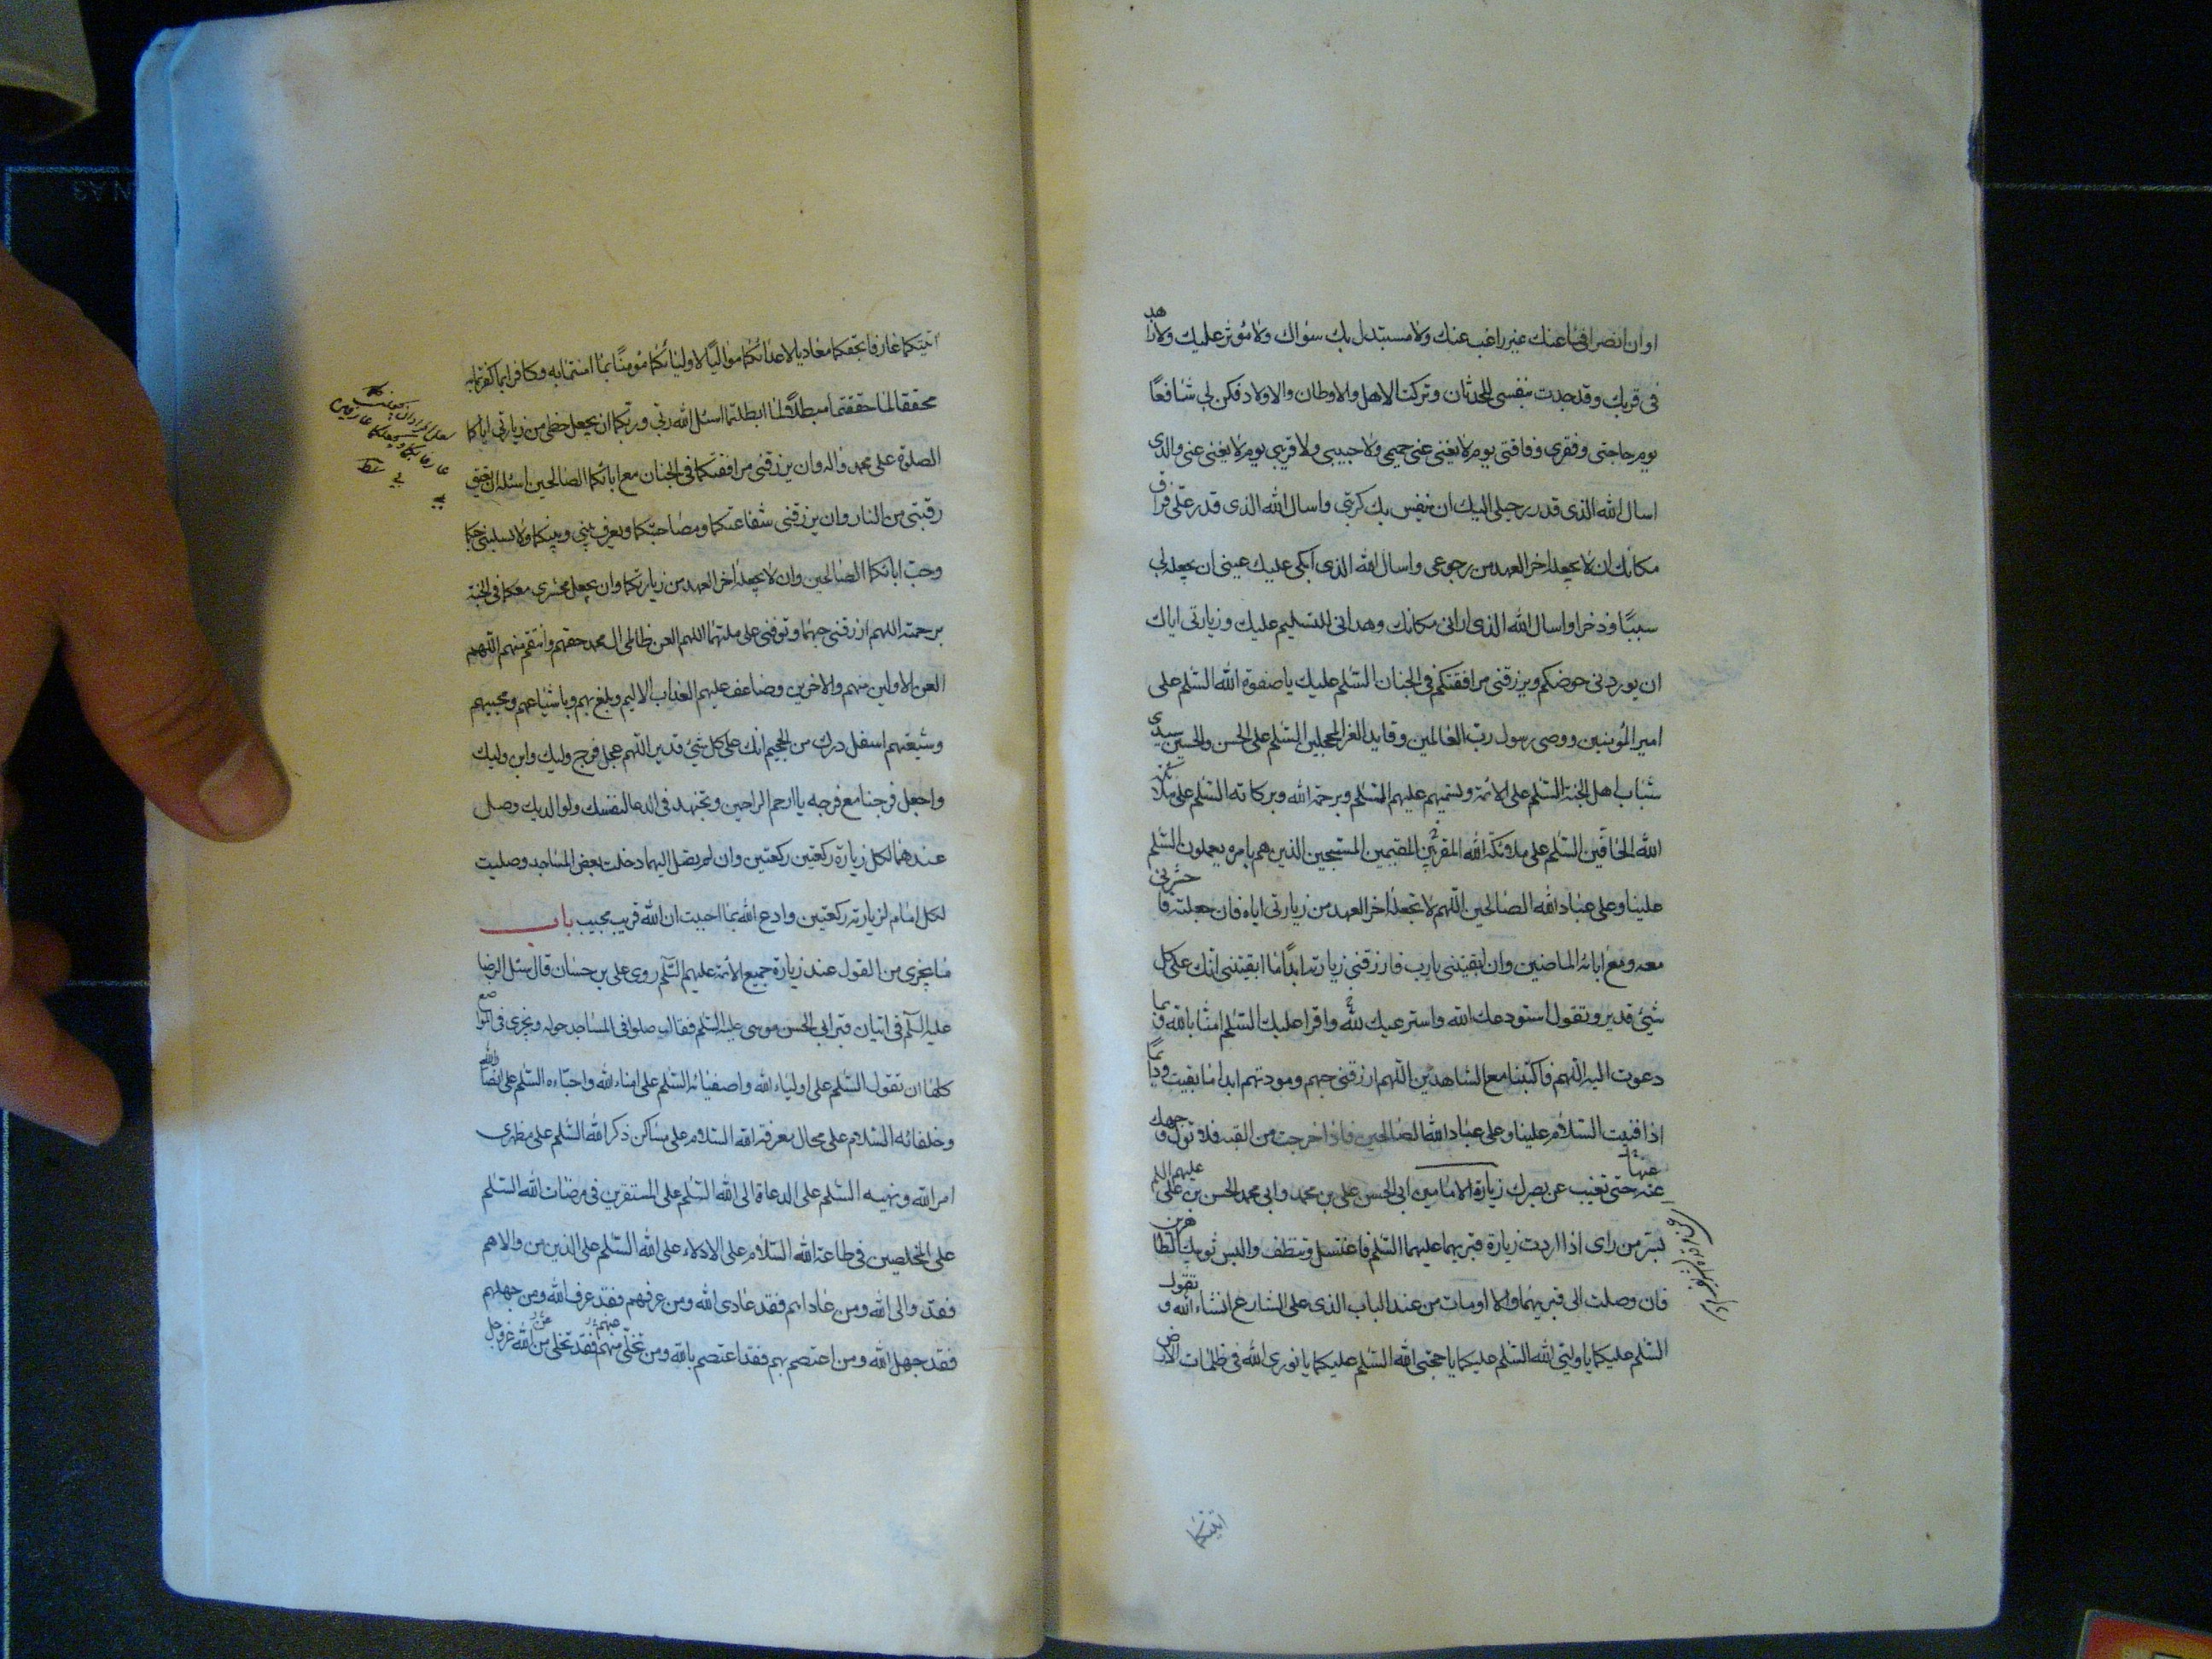 اوان انصرافی عنك غیر راغب عنك ولا مستبدل بك سواك ولا مؤثر علیك ولا زاهد
فی قربك وقد جدت بنفسی للحدثان وتركت الاهل والاوطان والاولاد فكن لی شافعًا
یوم حاجتی وفقری وفاقتی یوم لا یغنی عنی حمیمی ولا حبیبی ولا قریبی یوم لا یغنی عنی والدی
اسال الله الذی قدر رحیلی الیك ان ینفس بك كربتی واسال الله الذی قدر علی فراق
مكانك ان لا یجعله اخر العهد من رجوعی واسال الله الذی ابكی علیك عینی ان یجعله لی
سببًا وذخرا واسال الله الذی ارانی مكانك وهدانی للتسلیم علیك وزیارتی ایاك
ان یوردنی حوضكم ویرزقنی مرافقتكم فی الجنان السّلم علیك یا صفوة الله السّلم علی
امیر المؤمنین ووصی رسول ربّ العالمین وقاید الغر المحجلین السّلم علی الحسن والحسین سیدی
شباب اهل الجنة السّلم علی الائمة وتسمیهم علیهم السّلم ورحمة الله وبركاته السّلم علی ملائكة
الله الحافّین السّلم علی ملائكة الله المقربین المقیمین المسبحین الذین هم بامره یعملون السّلم
علینا وعلی عباد الله الصالحین اللّهم لا تجعله اخر العهد من زیارتی ایاه فان جعلته فاحشرنی
معه ومع ابائه الماضین وان ابقیتنی یا رب فارزقنی زیارته ابدًا ما ابقیتنی انك علی كل
شیئ قدیر وتقول استودعك الله واسترعیك الله واقرا علیك السّلم امنّا بالله وبما
دعوت الیه اللّهم فاكتبنا مع الشاهدین اللّهم ارزقنی حبهم ومودتهم ابدا ما بقیت ودایمًا
اذا فنیت السّلام علینا وعلی عباد الله الصالحین فاذا خرجت من القبه فلا تول وجهك
عنه حتی تغیب عن بصرك زیارة الامامین ابی الحسن علی بن محمد وابی محمد الحسن بن علی علیهم السلم
عنها
بسر من رای اذا اردت زیارة قبریهما علیهما السّلم فاغتسل وتنظف والبس ثوبیك الطاهرین
فان وصلت الی قبریهما والا اومات من عند الباب الذی علی الشارع انشاء الله وتقول
السّلم علیكما یا ولیّی الله السّلم علیكما یا حجتی الله السّلم علیكما یا نوری الله فی ظلمات الارض
اتیتكما
اتیتكما عارفا بحقكما معادیا لاعدائكما موالیًا لاولیائكما مؤمنًا بما امنتما به وكافرا بما كفرتما به
محققا لما حققتما مبطلًا لما ابطلتما اسئل الله ربی وربكما ان یجعل حظی من زیارتی ایاكما
الصلوة علی محمد واله وان یرزقنی مرافقتكما فی الجنان مع ابائكما الصالحین اسئله ان یعتق
رقبتی من النار وان یرزقنی شفاعتكما ومصاحبتكما ویعرف بینی وبینكما ولا یسلبنی حبكما
وحب ابائكما الصالحین وان لا یجعله اخر العهد من زیارتكما وان یجعل محشری معكما فی الجنة
برحمته اللهم ارزقنی حبهما وتوفنی علی ملتهما اللهم العن ظالمی ال محمد حقهم وانتقم منهم اللّهم
العن الاولین منهم والاخرین وضاعف علیهم العذاب الالیم وبلغ بهم وباشیاعهم ومحبیهم
وشیعتهم اسفل درك من الجحیم انك علی كل شیئ قدیر اللّهم عجل فرج ولیك وابن ولیك
واجعل فرجنا مع فرجه یا ارحم الراحمین وتجتهد فی الدعا لنفسك ولوالدیك وصل
عندهما لكل زیارة ركعتین ركعتین وان لم تصل الیهما دخلت بعض المساجد وصلیت
لكل امام لزیارته ركعتین وادع الله بما احببت ان الله قریب مجیب باب
ما یجزی من القول عند زیارة جمیع الائمة علیهم السّلم روی علی بن حسّان قال سئل الرضا
علیه السّلم فی اتیان قبر ابی الحسن موسی علیه السّلم فقال صلوا فی المساجد حوله ویجزی فی المواضع
كلها ان تقول السّلم علی اولیاء الله واصفیائه السّلم علی امناء الله واحبّاءه السّلم علی انصار الله
وخلفائه السّلام علی محال معرفة الله السّلام علی مساكن ذكر الله السّلم علی مظهری
امر الله ونهیه السّلم علی الدعاة الی الله السّلم علی المستقرین فی مرضات الله السّلم
علی المخلصین فی طاعة الله السّلام علی الادلاء علی الله السّلم علی الذین من والاهم
فقد والی الله ومن عاداهم فقد عادی الله ومن عرفهم فقد عرف الله ومن جهلهم
فقد جهل الله ومن اعتصم بهم فقد اعتصم بالله ومن تخلّی منهم فقد تخلی من الله عز وجل